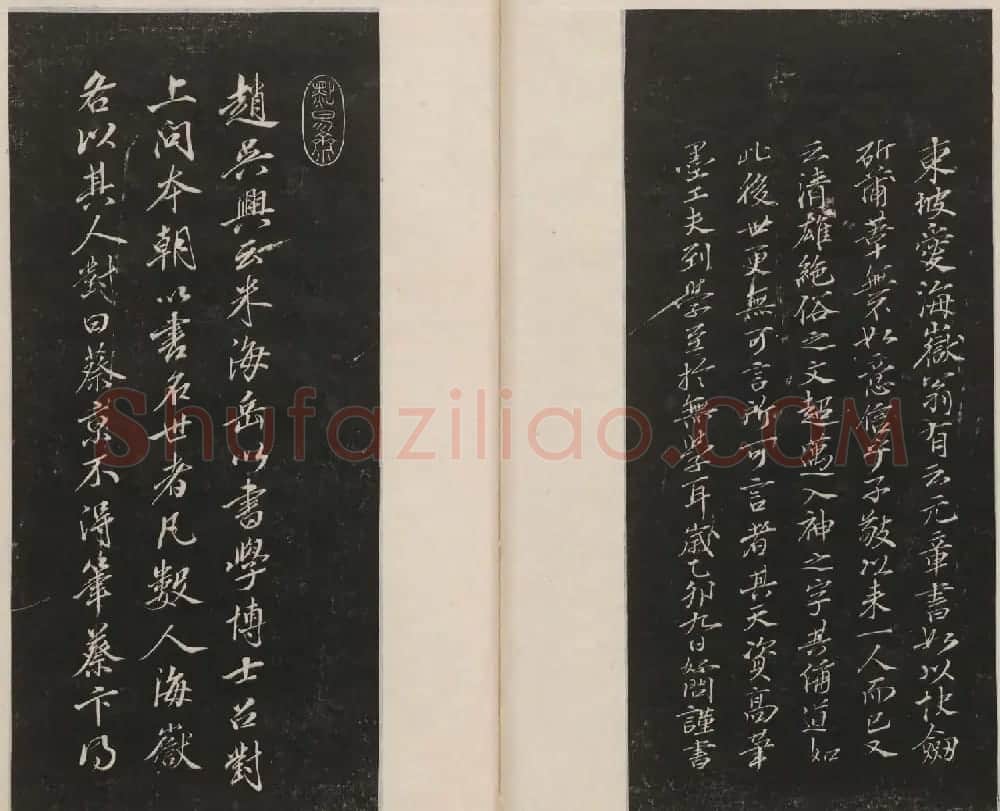 東坡愛海嶽翁有云元章書如以快劍
斫蒲葦無不如意信乎子敬以來一人而已又
云清雄絕俗之文超邁入神之字其稱道如
此後世更無可言所可言者其天資高筆
墨工夫到學至於無學耳歲乙卯九日好問謹書
趙吳興云米海岳以書學博士召對
上問本朝以書名世者凡數人海嶽
各以其人對曰蔡京不得筆蔡卞得
Shufaziliao.COM